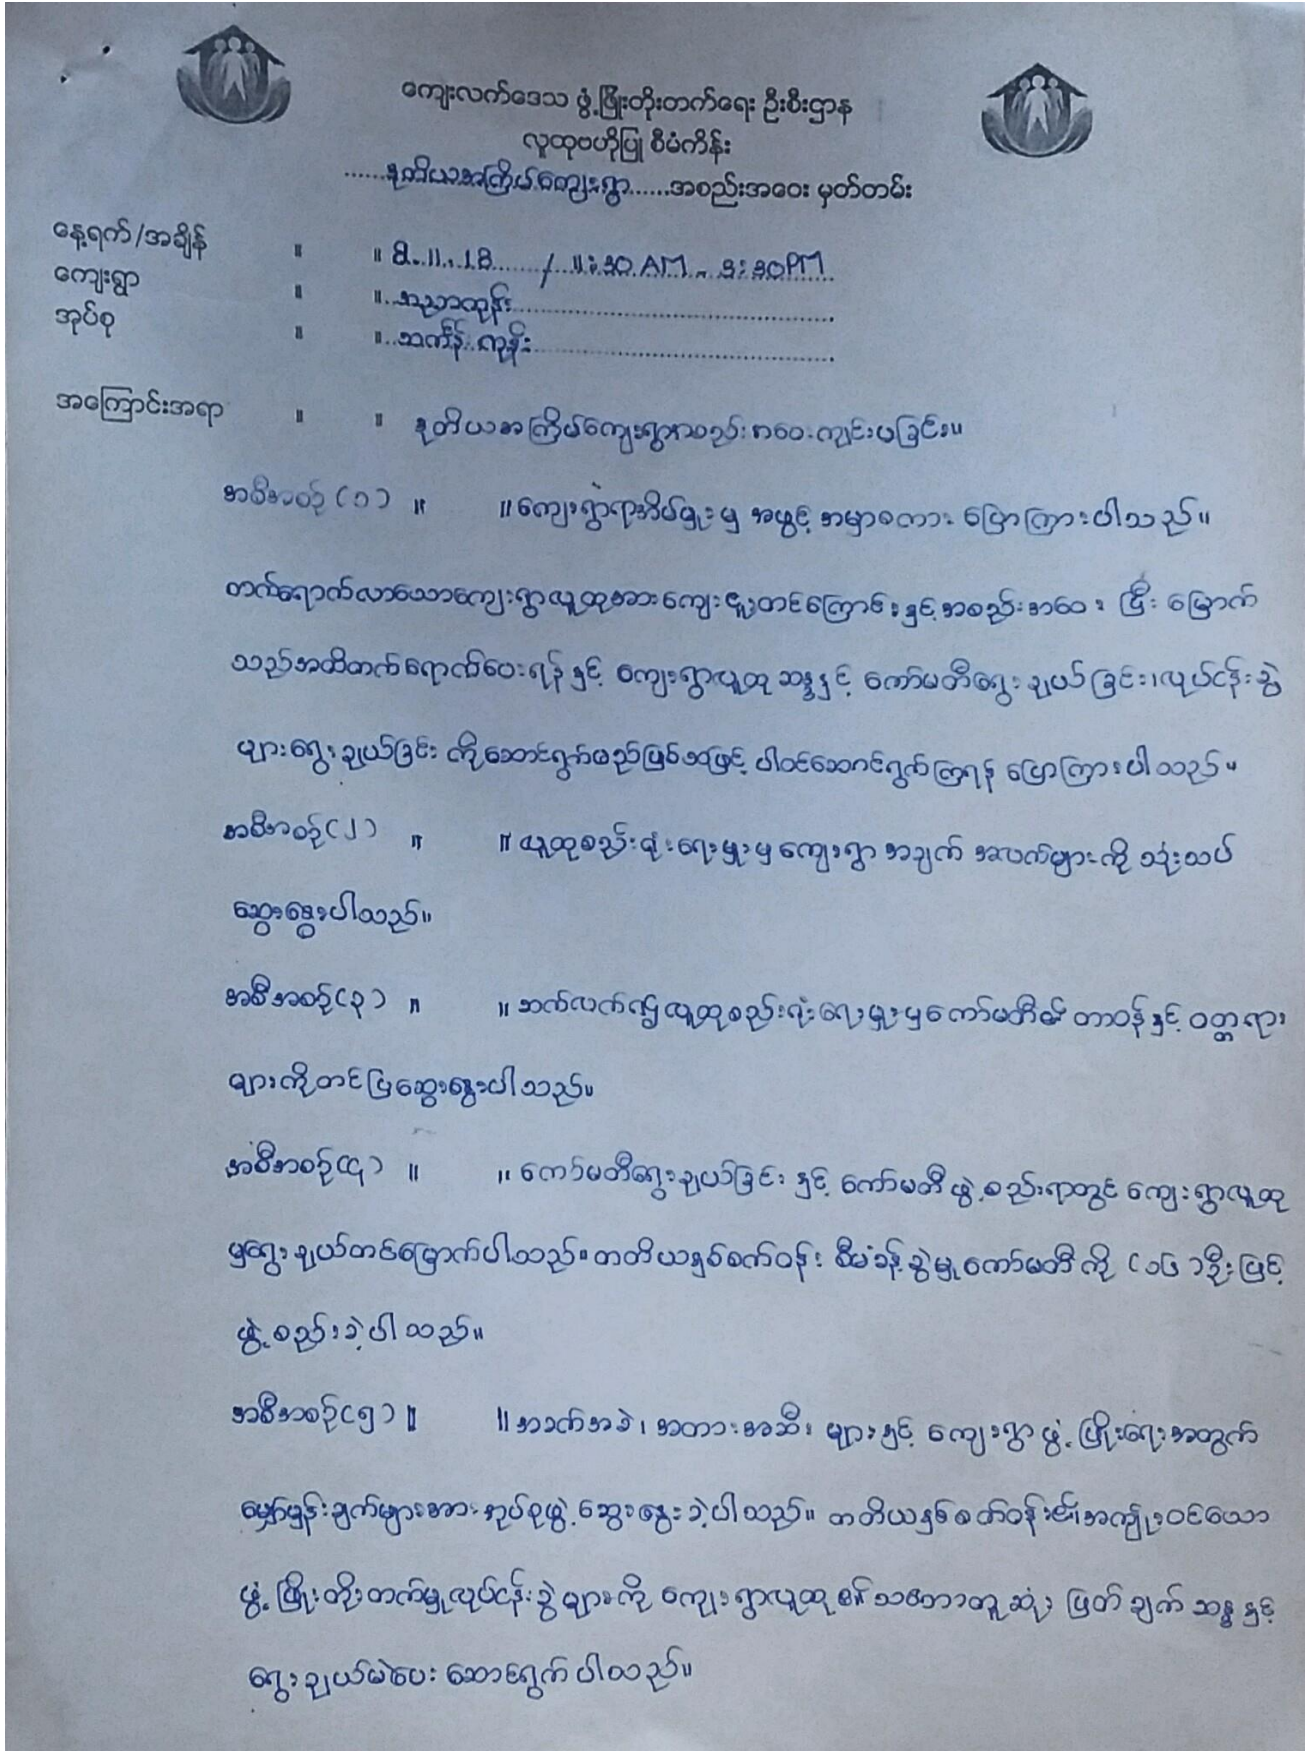 ကျေးလက်ဒေသ ဖွံ့ဖြိုးတိုးတက်ရေး ဦးစီးဌာန
လူထုဗဟိုပြု စီမံကိန်း
......ဒုတိယအကြိမ်ကျေးရွာ......အစည်းအဝေး မှတ်တမ်း
နေ့ရက်/အချိန် ။ ။ 8.11.18 / 11:30 AM - 3:30PM
ကျေးရွာ ။ ။
အုပ်စု ။ ။ သင်္ကန်းကုန်း
အကြောင်းအရာ ။ ။ ဒုတိယအကြိမ်ကျေးရွာအစည်းအဝေးကျင်းပခြင်း။
အစီအစဉ်(၁) ။ ။ ကျေးရွာရာအိမ်မှူးမှ အဖွင့် အမှာစကား ပြောကြားပါသည်။
တက်ရောက်လာသောကျေးရွာလူထုအားကျေးဇူးတင်ကြောင်းနှင့်အစည်းအဝေး ပြီးမြောက်
သည်အထိတက်ရောက်ပေးရန်နှင့် ကျေးရွာလူထု ဆန္ဒနှင့် ကော်မတီရွေးချယ်ခြင်း၊လုပ်ငန်းခွဲ
များရွေးချယ်ခြင်း ကိုဆောင်ရွက်မည်ဖြစ်သဖြင့် ပါဝင်ဆောင်ရွက်ကြရန် ပြောကြားပါသည်။
အစီအစဉ်(၂) ။ ။ လူထုစည်းရုံးရေးမှူးမှ ကျေးရွာ အချက် အလက်များကို သုံးသပ်
ဆွေးနွေးပါသည်။
အစီအစဉ်(၃) ။ ။ ဆက်လက်၍လူထုစည်းရုံးရေးမှူးမှကော်မတီ၏ တာဝန်နှင့် ဝတ္တရား
များကိုတင်ပြဆွေးနွေးပါသည်။
အစီအစဉ်(၄) ။ ။ ကော်မတီရွေးချယ်ခြင်း နှင့် ကော်မတီ ဖွဲ့စည်းရာတွင် ကျေးရွာလူထု
မှရွေးချယ်တင်မြောက်ပါသည်။တတိယနှစ်စက်ဝန်း စီမံခန့်ခွဲမှုကော်မတီကို (၁၆)ဦးဖြင့်
ဖွဲ့စည်းခဲ့ပါသည်။
အစီအစဉ်(၅) ။ ။ အခက်အခဲ၊ အတားအဆီး များနှင့် ကျေးရွာ ဖွံ့ဖြိုးရေးအတွက်
မျှော်မှန်းချက်များအား အုပ်စုဖွဲ့ ဆွေးနွေးခဲ့ပါသည်။ တတိယနှစ်စက်ဝန်း၏အကျုံးဝင်သော
ဖွံ့ဖြိုးတိုးတက်မှုလုပ်ငန်းခွဲများကို ကျေးရွာလူထု၏ သဘောတူဆုံးဖြတ်ချက် ဆန္ဒနှင့်
ရွေးချယ်မဲပေး ဆောင်ရွက်ပါသည်။